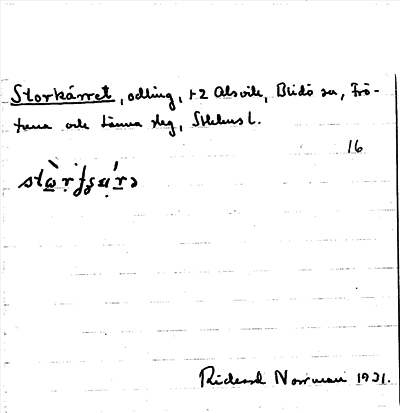 Storkärret, odling, 1-2 Alsvik, Blidö sn, Frö-
tuna och Länna skg, Sthlms l.
16
Rickard Norrman 1931.